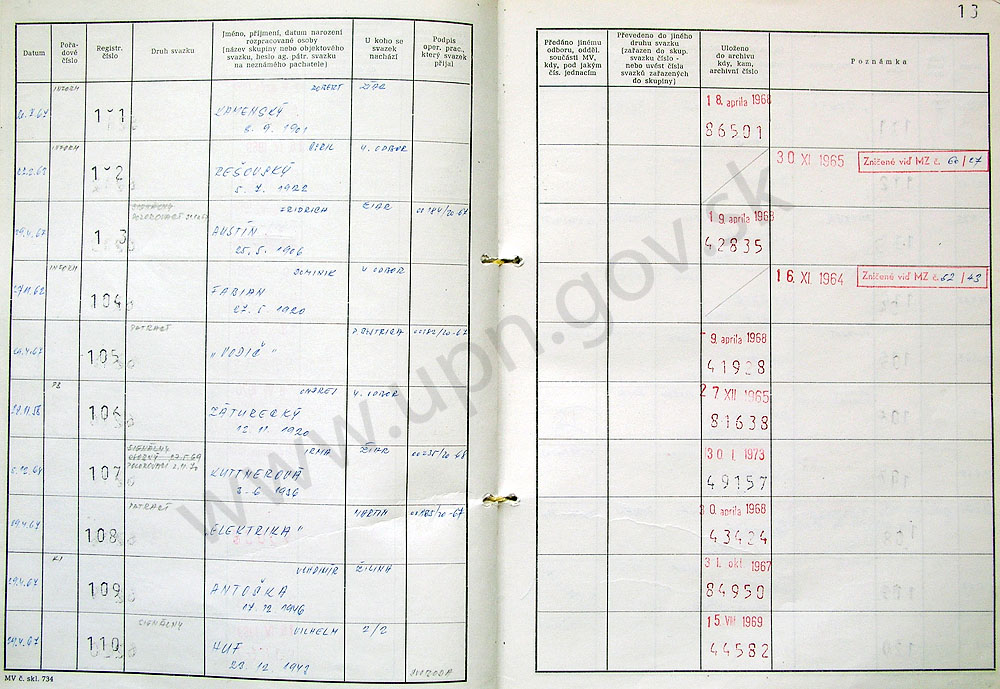 13
Datum
Pořa-
dové
číslo
Registr.
číslo
Druh svazku
Jméno, příjmení, datum narození
rozpracované osoby
(název skupiny nebo objektového
svazku, heslo ag. pátr. svazku
na neznámého pachatele)
U koho se
svazek
nachází
Podpis
oper. prac.,
který svazek
přijal
Předáno jinému
odboru, odděl.
součásti MV,
kdy, pod jakým
čís. jednacím
Převedeno do jiného
druhu svazku
(zařazen do skup.
svazku číslo -
nebo uvést čísla
svazků zařazených
do skupiny)
Uloženo
do archivu
kdy, kam,
archivní číslo
Poznámka
INFORM
ROBERT
KAMENSKÝ
8. 9. 1901
18. apríla 1968
86501
INFORM
REŠOVSKÝ
5. 7. 1922
4. ODBOR
30 XI 1965
Zničené viď MZ č. 60/27
29.4.67
FRIDRICH
AUSTIN
25. 5. 1906
ŽIAR
00184/20-67
19. apríla 1968
42835
INFORM
104
DOMINIK
FABIAN
27. 5. 1920
4 ODBOR
16. XI. 1964
Zničené viď MZ č. 62/43
105
PÁTRACÍ
„VODIČ"
00182/20-67
9 apríla 1968
41928
106
ONDREJ
ZÁTURECKÝ
12. 11. 1920
4. ODBOR
27 XII 1965
81638
107
SIGNÁLNY
IRMA
KUTTNEROVÁ
3-6 1936
ŽIAR
00235/20-68
30. I 1973
49157
19.4.67
108
PÁTRACÍ
ELEKTRIKA"
MARTIN
00185/20-67
30 apríla 1968
43424
29.4.67
109
KI
VLADIMÍR
ANTOŠKA
17. 12 1946
ŽILINA
31. okt. 1967
84950
29.4.67
110
SIGNÁLNY
VILHELM
HUF
23. 12 1943
2/2
SVOBODA
15 VIII 1969
44582
MV č. skl. 734
www.upn.gov.sk